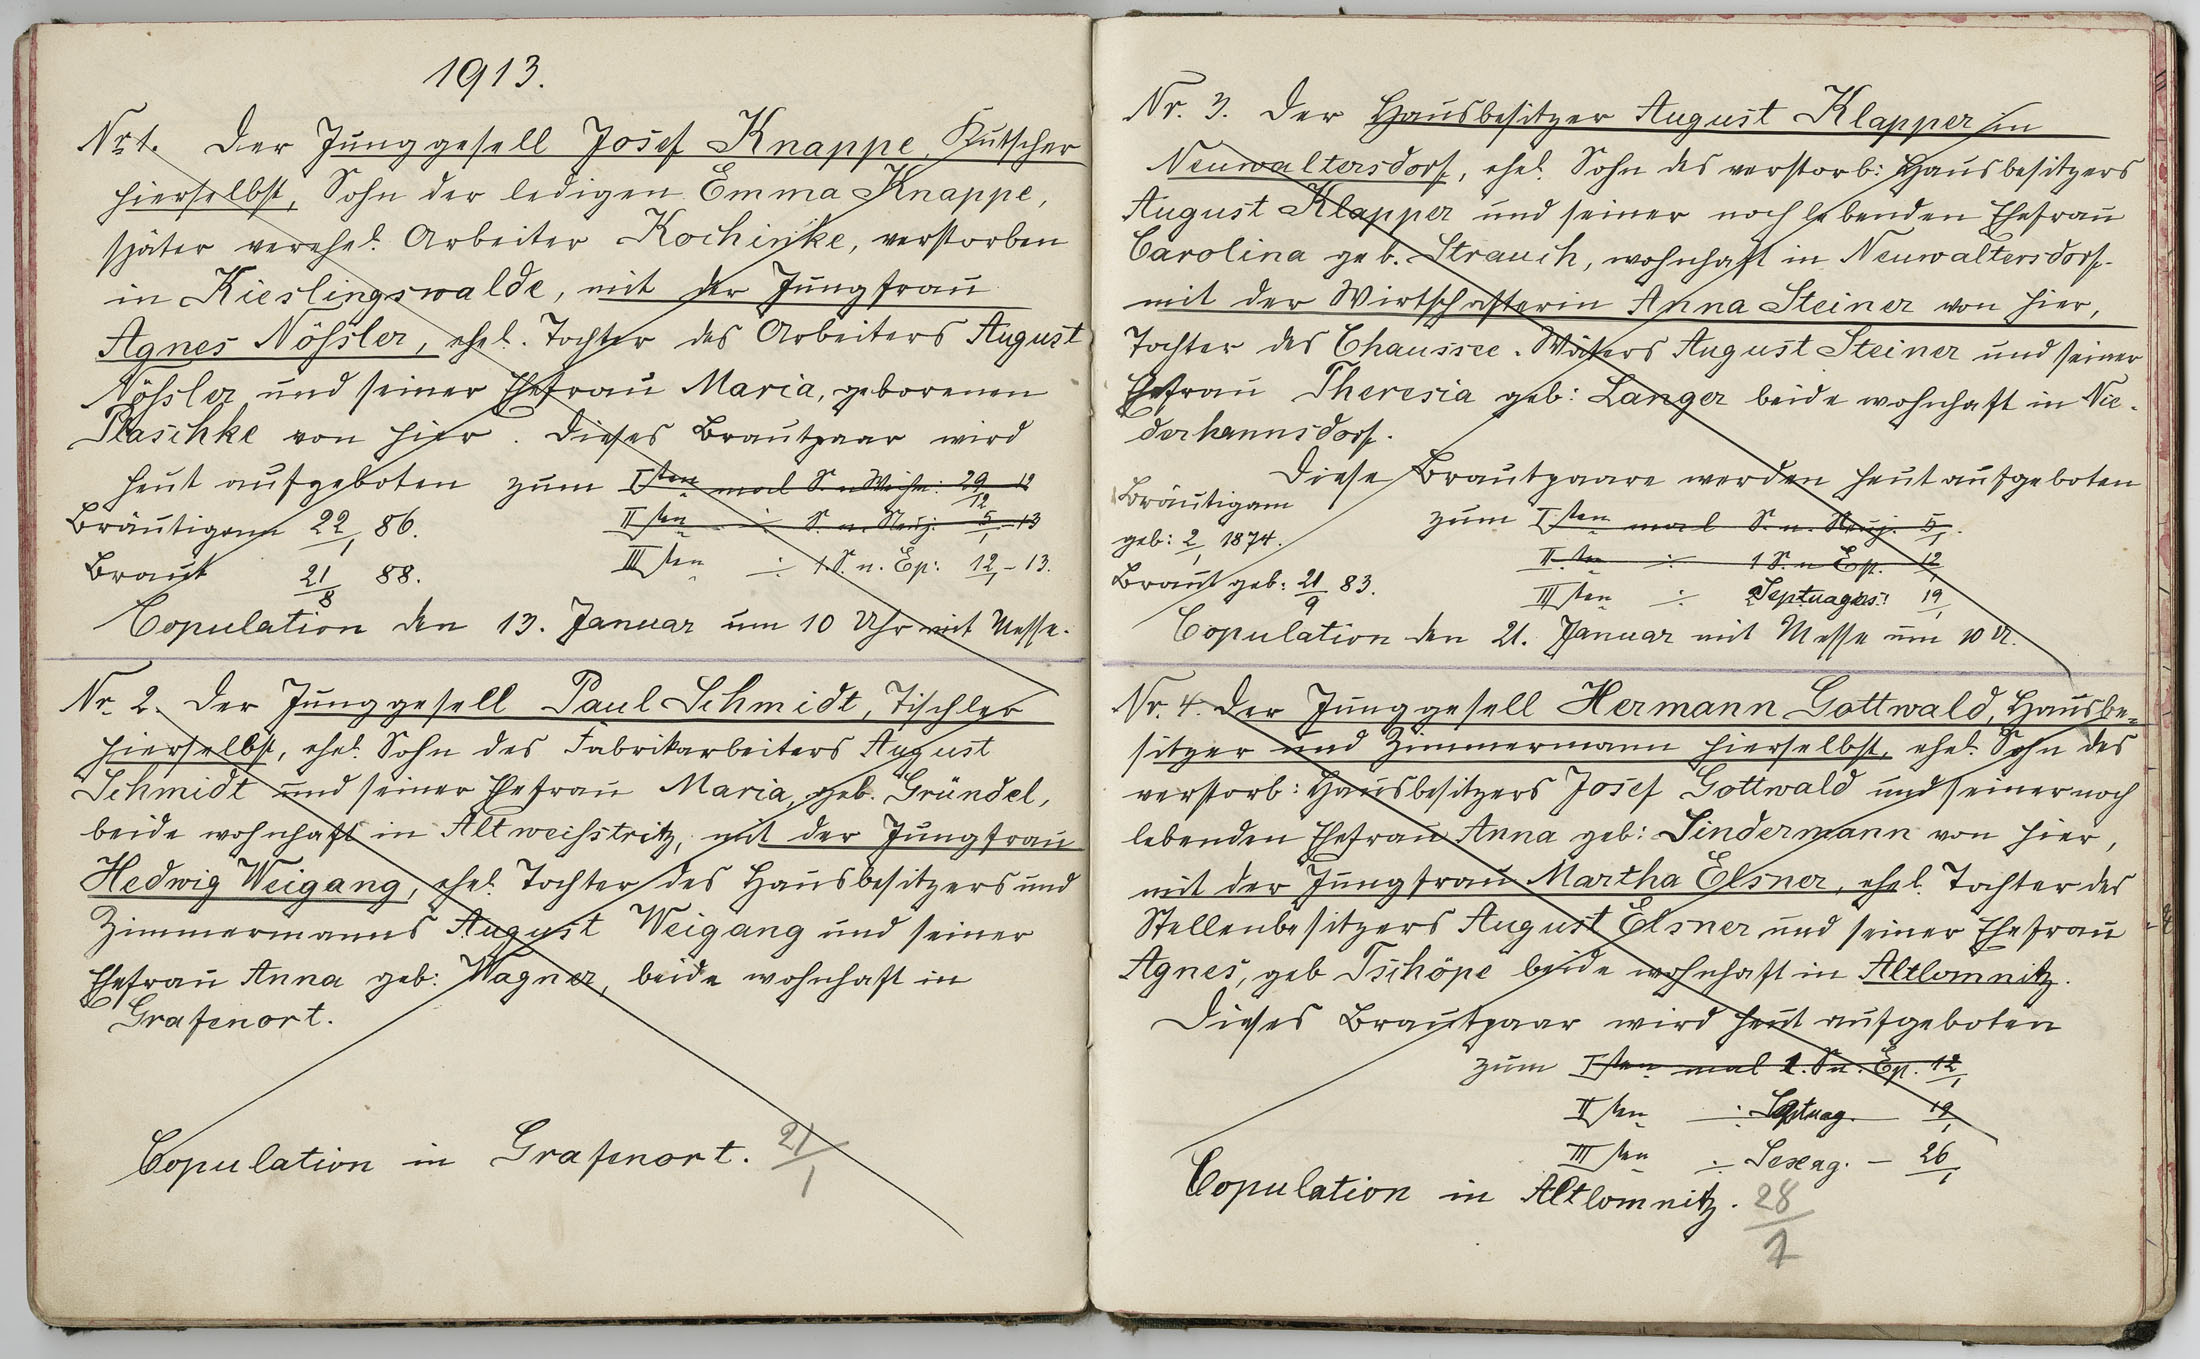 1913.
Nr. 1. Der Junggesell Josef Knappe, Kutscher
hierselbst, Sohn der ledigen Emma Knappe,
später verehel. Arbeiter Kochinke, verstorben
in Kieslingswalde, mit der Jungfrau
Agnes Nößler, ehel. Tochter des Arbeiters August
Nößler und seiner Ehefrau Maria, geborenen
Plaschke von hier. Dieses Brautpaar wird
heut aufgeboten zum Isten mal S. n. Weihn: 29/12 12
Bräutigam 22/1 86. IIten ÷ S. n. Neuj. 5/1 13
Braut 21/8 88. IIIten ÷ 1. S. n. Ep: 12/1 - 13.
Copulation den 13. Januar um 10 Uhr mit Messe.
Nr. 2. Der Junggesell Paul Schmidt, Tischler
hierselbst, ehel. Sohn des Fabrikarbeiters August
Schmidt und seiner Ehefrau Maria, geb. Gründel,
beide wohnhaft in Altweißtritz, mit der Jungfrau
Hedwig Weigang, ehel. Tochter des Hausbesitzers und
Zimmermanns August Weigang und seiner
Ehefrau Anna geb: Wagner, beide wohnhaft in
Grafenort.
Copulation in Grafenort. 21/1
Nr. 3. Der Hausbesitzer August Klapper in
Neuwaltersdorf, ehel. Sohn des verstorb: Hausbesitzers
August Klapper und seiner noch lebenden Ehefrau
Carolina geb. Strauch, wohnhaft in Neuwaltersdorf.
mit der Wirtschafterin Anna Steiner von hier,
Tochter des Chaussee-Wärters August Steiner und seiner
Ehefrau Theresia geb: Langer beide wohnhaft in Nie-
derhannsdorf.
Diese Brautpaare werden heut aufgeboten
Bräutigam
zum Isten mal S. n. Neuj. 5/1.
geb: 2/1 1874.
IIten ÷ 1 S. n. Ep. 12/1
Braut geb: 21/9 83.
IIIten ÷ Septuages: 19/1
Copulation den 21. Januar mit Messe um 10 U.
Nr. 4. Der Junggesell Hermann Gottwald, Hausbe-
sitzer und Zimmermann hierselbst, ehel. Sohn des
verstorb: Hausbesitzers Josef Gottwald und seiner noch
lebenden Ehefrau Anna geb: Lindermann von hier,
mit der Jungfrau Martha Elsner, ehel. Tochter des
Stellenbesitzers August Elsner und seiner Ehefrau
Agnes, geb Tschöpe beide wohnhaft in Altlomnitz.
Dieses Brautpaar wird heut aufgeboten
zum Isten mal 1. S. n. Ep. 12/1
IIten ÷ Septuag. 19/1
IIIten ÷ Sexag. - 26/1
Copulation in Altlomnitz. 28/1